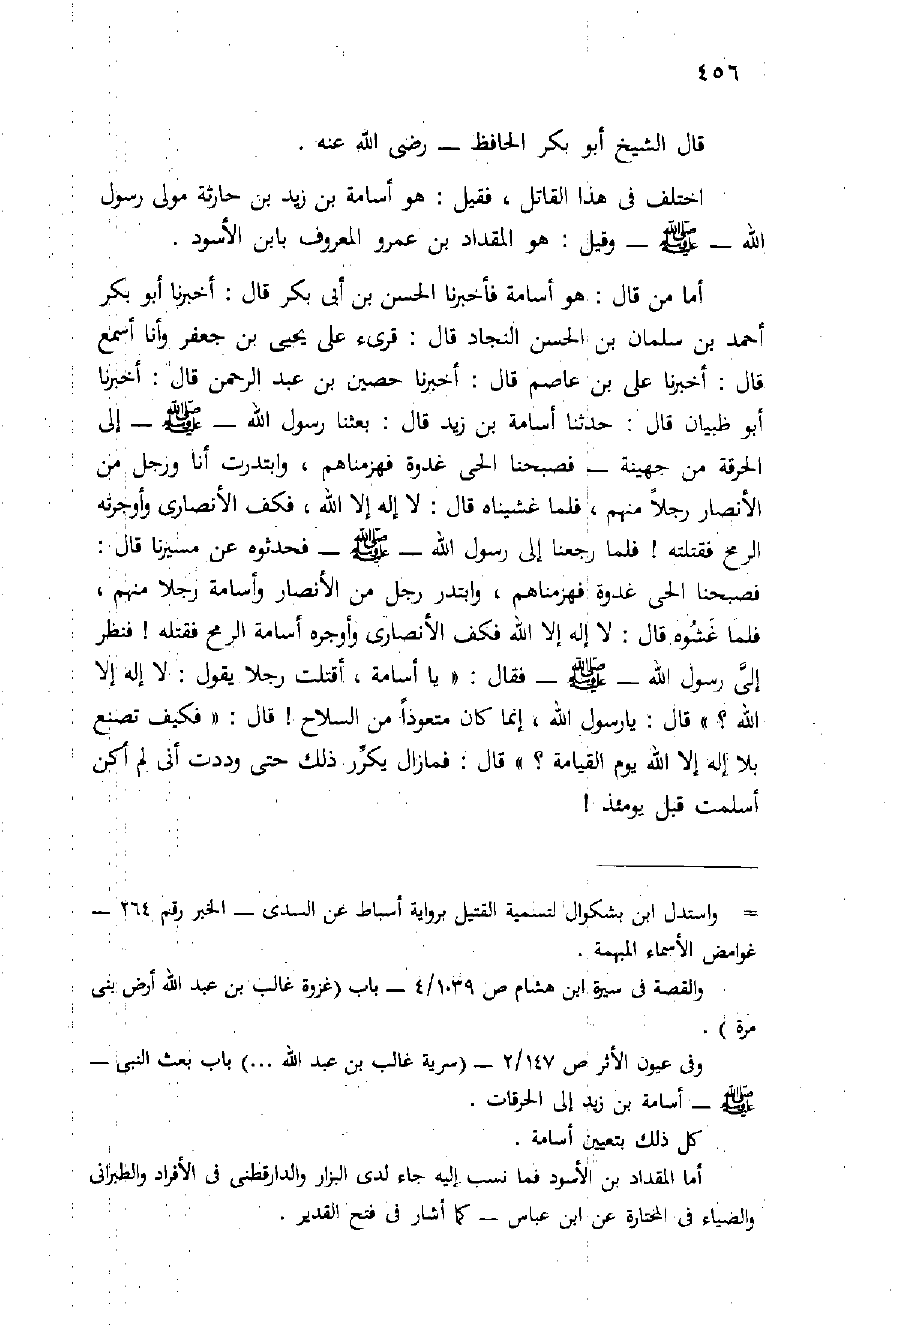 ٤٥٦
قال الشيخ أبو بكر الحافظ — رضى الله عنه .
اختلف فى هذا القاتل ، فقيل : هو أسامة بن زيد بن حارثة مولى رسول
الله — ﷺ — وقيل : هو المقداد بن عمرو المعروف بابن الأسود .
أما من قال : هو أسامة فأخبرنا الحسن بن أبى بكر قال : أخبرنا أبو بكر
أحمد بن سلمان بن الحسن النجاد قال : قرىء على يحيى بن جعفر وأنا أسمع
قال : أخبرنا على بن عاصم قال : أخبرنا حصين بن عبد الرحمن قال : أخبرنا
أبو ظبيان قال : حدثنا أسامة بن زيد قال : بعثنا رسول الله — ﷺ — إلى
الحرقة من جهينة — فصبحنا الحى غدوة فهزمناهم ، وابتدرت أنا ورجل من
الأنصار رجلاً منهم ، فلما غشيناه قال : لا إله إلا الله ، فكف الأنصارى وأوجرته
الرمح فقتلته ! فلما رجعنا إلى رسول الله — ﷺ — فحدثوه عن مسيرنا قال :
فصبحنا الحى غدوة فهزمناهم ، وابتدر رجل من الأنصار وأسامة رجلا منهم ،
فلما غَشُوه قال : لا إله إلا الله فكف الأنصارى وأوجره أسامة الرمح فقتله ! فنظر
إلىَّ رسول الله — ﷺ — فقال : « يا أسامة ، أقتلت رجلا يقول : لا إله إلا
الله ؟ » قال : يارسول الله ، إنما كان متعوذاً من السلاح ! قال : « فكيف تصنع
بلا إله إلا الله يوم القيامة ؟ » قال : فمازال يكرِّر ذلك حتى وددت أنى لم أكن
أسلمت قبل يومئذ !
= واستدل ابن بشكوال لتسمية القتيل برواية أسباط عن السدى — الخبر رقم ٢٦٤ —
غوامض الأسماء المبهمة .
والقصة فى سيرة ابن هشام ص ٤/١٠٣٩ — باب (غزوة غالب بن عبد الله أرض بنى
مرة ) .
وفى عيون الأثر ص ٢/١٤٧ — (سرية غالب بن عبد الله ...) باب بعث النبى —
ﷺ — أسامة بن زيد إلى الحرقات .
كل ذلك بتعيين أسامة .
أما المقداد بن الأسود فما نسب إليه جاء لدى البزار والدارقطنى فى الأفراد والطبرانى
والضياء فى المختارة عن ابن عباس — كما أشار فى فتح القدير .